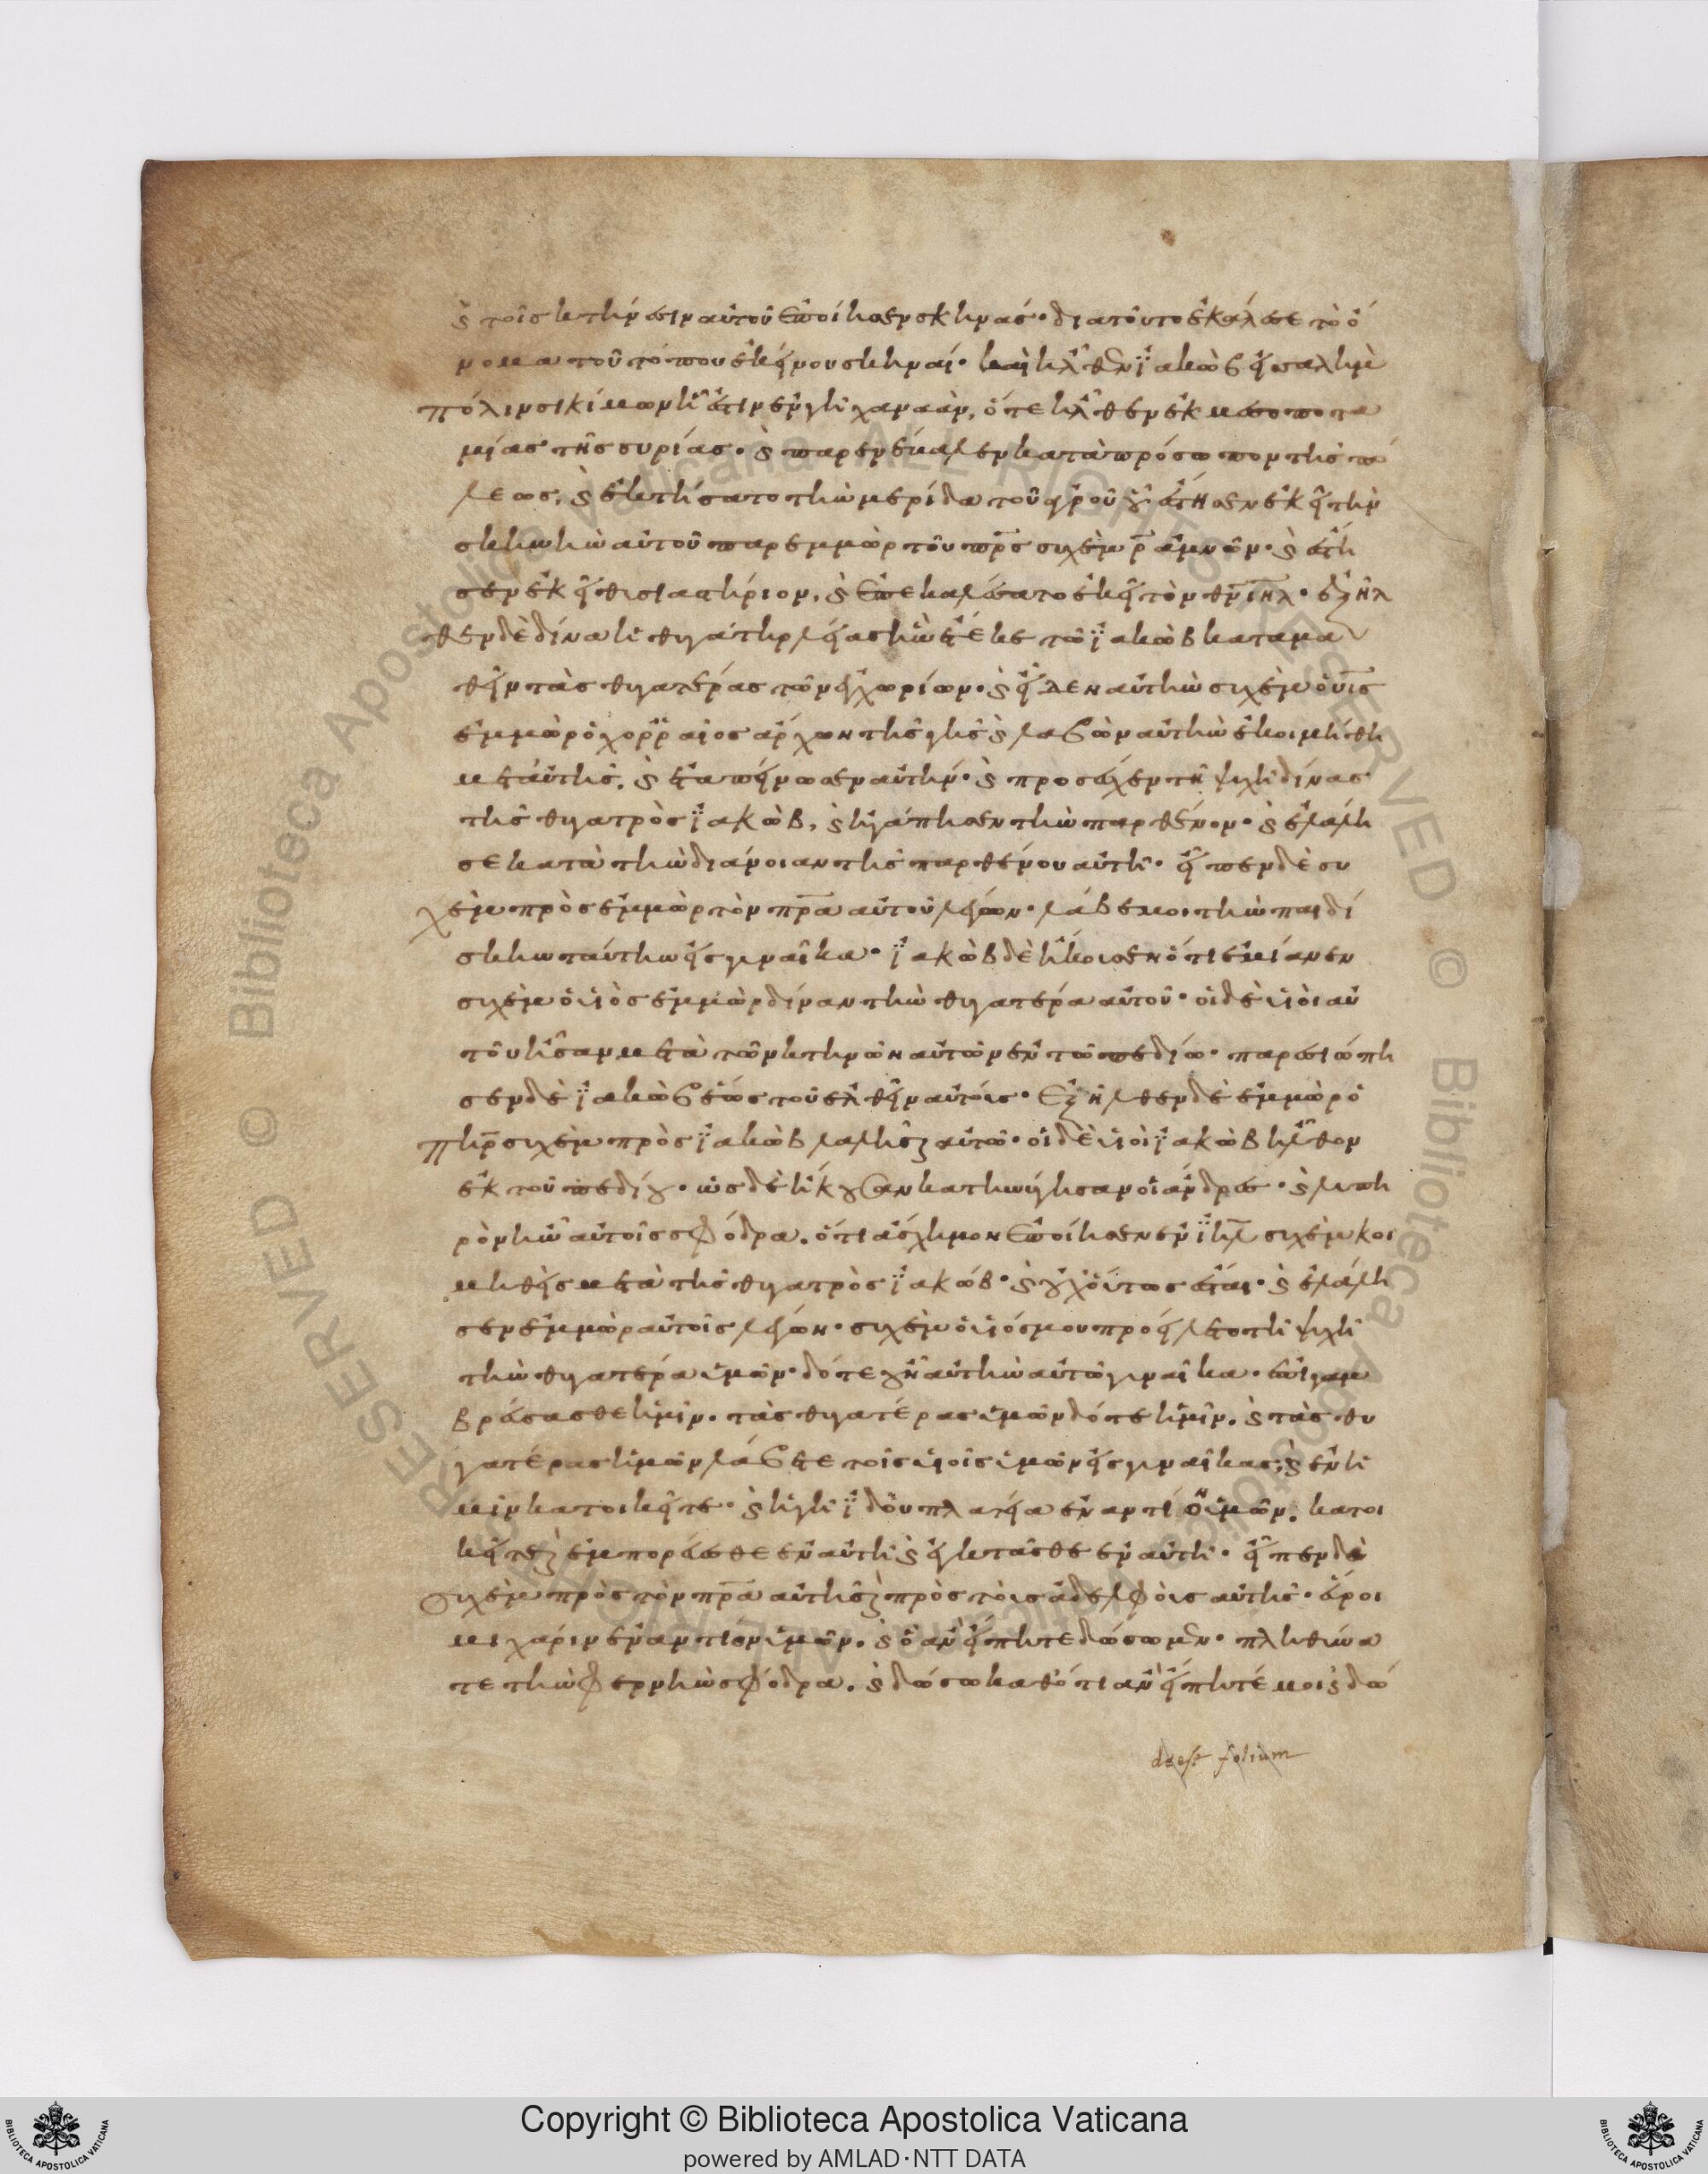 ϗ τοῖς κτήνεσιν αὐτοῦ ἐποίησεν σκηνάς· διατοῦτο ἐκάλεσε τὸ ὄ
νομα τοῦ τόπου ἐκείνου σκηναί· καὶ ἦλθεν ϊακὼβ εἰς σαλὴμ
πόλιν σικίμων ἥ ἐστιν ἐν γῆ χαναὰν, ὅτε ἦλθεν ἐκ μεσοποτα
μίας τῆς συρίας· ϗ παρενέβαλεν κατὰ πρόσωπον τῆς πό
λεως, ϗ ἐκτήσατο τὴν μερίδα τοῦ ἀγροῦ οὗ ἔστησεν ἐκεῖ τὴν
σκηνὴν αὐτοῦ παρ ἐμμὼρ τοῦ πρ̅ς συχὲμ ρ̅ ἀμνῶν· ϗ ἔστη
σεν ἐκεῖ θυσιαστήριον, ϗ ἐπεκαλέσατο ἐκεῖ τὸν θν̅ ιη̅λ· ἐξῆλ
θεν δὲ δίνα ἡ θυγάτηρ λείας ἣν ἔτεκε τῶ ϊακὼβ καταμα
θεῖν τὰς θυγατέρας τῶν ἐγχωρίων· ϗ εἶδεν αὐτὴν συχὲμ ὁ υι̅ς
ἐμμὼρ ὁ χορραῖος ἄρχων τῆς γῆς ϗ λαβὼν αὐτὴν ἐκοιμήθη
μετ αὐτῆς, ϗ ἐταπείνωσεν αὐτήν· ϗ προσέσχεν τῆ ψυχῆ δίνας
τῆς θυγατρὸς ϊακὼβ, ϗ ἠγάπησεν τὴν παρθένον· ϗ ἐλάλη
σε κατὰ τὴν διάνοιαν τῆς παρθένου αὐτῆ· εἶπεν δὲ συ
χὲμ πρὸς ἐμμὼρ τὸν πρ̅α αὐτοῦ λέγων· λάβε μοι τὴν παιδί
σκην ταύτην εἰς γυναῖκα· ϊακὼβ δὲ ἤκουσεν ὅτι ἐμίανεν
συχὲμ ὁ υἱὸς ἐμμὼρ δίναν τὴν θυγατέρα αὐτοῦ· οἱ δὲ υἱοὶ αὐ
τοῦ ἦσαν μετὰ τῶν κτηνῶν αὐτῶν ἐν τῶ πεδίω· παρεσιώπη
σεν δὲ ϊακὼβ ἕως τοῦ ἐλθεῖν αὐτούς· ἐξῆλθεν δὲ ἐμμὼρ ὁ
πη̅ρ συχὲμ πρὸς ϊακὼβ λαλῆσαι αὐτῶ· οἱ δὲ υἱοὶ ϊακὼβ ἦλθον
ἐκ τοῦ πεδίου· ὡς δὲ ἤκουσαν κατηνύγησαν οἱ ἄνδρες· ϗ λυπη
ρὸν ἦν αὐτοῖς σφόδρα, ὅτι ἄσχημον ἐποίησεν ἐν ϊη̅λ συχὲμ κοι
μηθεὶς μετὰ τῆς θυγατρὸς ϊακώβ· ϗ οὐχ οὕτως ἔσται· ϗ ἐλάλη
σεν ἐμμὼρ αὐτοῖς λέγων· συχὲμ ὁ υἱός μου προείλετο τῆ ψυχῆ
τὴν θυγατέρα ὑμῶν· δότε οὖν αὐτὴν αὐτῶ γυναῖκα· ἐπιγαμ
βρεύσασθε ἡμῖν. τὰς θυγατέρας ὑμῶν δότε ἡμῖν. ϗ τὰς θυ
γατέρας ἡμῶν λάβετε τοῖς υἱοῖς ὑμῶν εἰς γυναῖκας, ϗ ἐν ἡ
μῖν κατοικεῖτε· ϗ ἡ γῆ ϊδοὺ πλατεῖα ἐναντίον ὑμῶν. κατοι
κεῖτε ϗ ἐμπορεύεσθε ἐν αὐτῆ ϗ ἐγκτᾶσθε ἐν αὐτῆ· εἶπεν δὲ
συχὲμ πρὸς τὸν πρ̅α αὐτῆς ϗ πρὸς τοὺς ἀδελφοὺς αὐτῆς· εὕροι
μι χάριν ἐναντίον ὑμῶν. ϗ ὃ ἂν εἴπητε δώσωμεν· πληθύνα
τε τὴν φερνὴν σφόδρα. ϗ δώσω καθότι ἂν εἴπητέ μοι ϗ δώ
deest folium
Copyright © Biblioteca Apostolica Vaticana
powered by AMLAD·NTT DATA